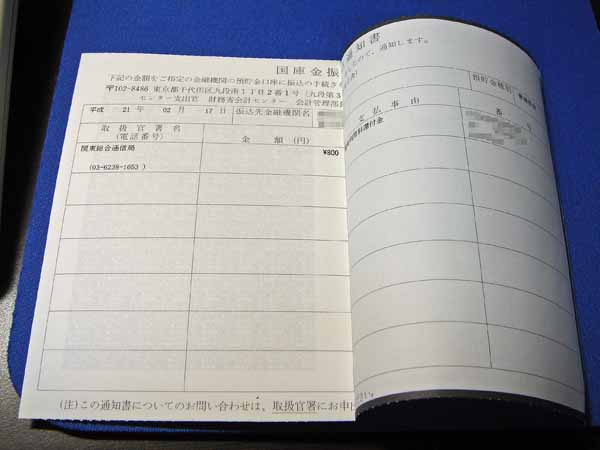 国庫金振
通知書
下記の金額をご指定の金融機関の預貯金口座に振込の手続き
したので、通知します。
〒102-8486 東京都千代田区九段南1丁目2番1号 (九段第3
センター支出官 財務省会計センター 会計管理部長
平成 21 年 02 月 17 日 振込先金融機関名
預貯金種別
取扱官署名
(電話番号)
金 額(円)
支払事由
番 号
関東総合通信局
¥800
(03-6238-1653 )
(注)この通知書についてのお問い合わせは、取扱官署にお申